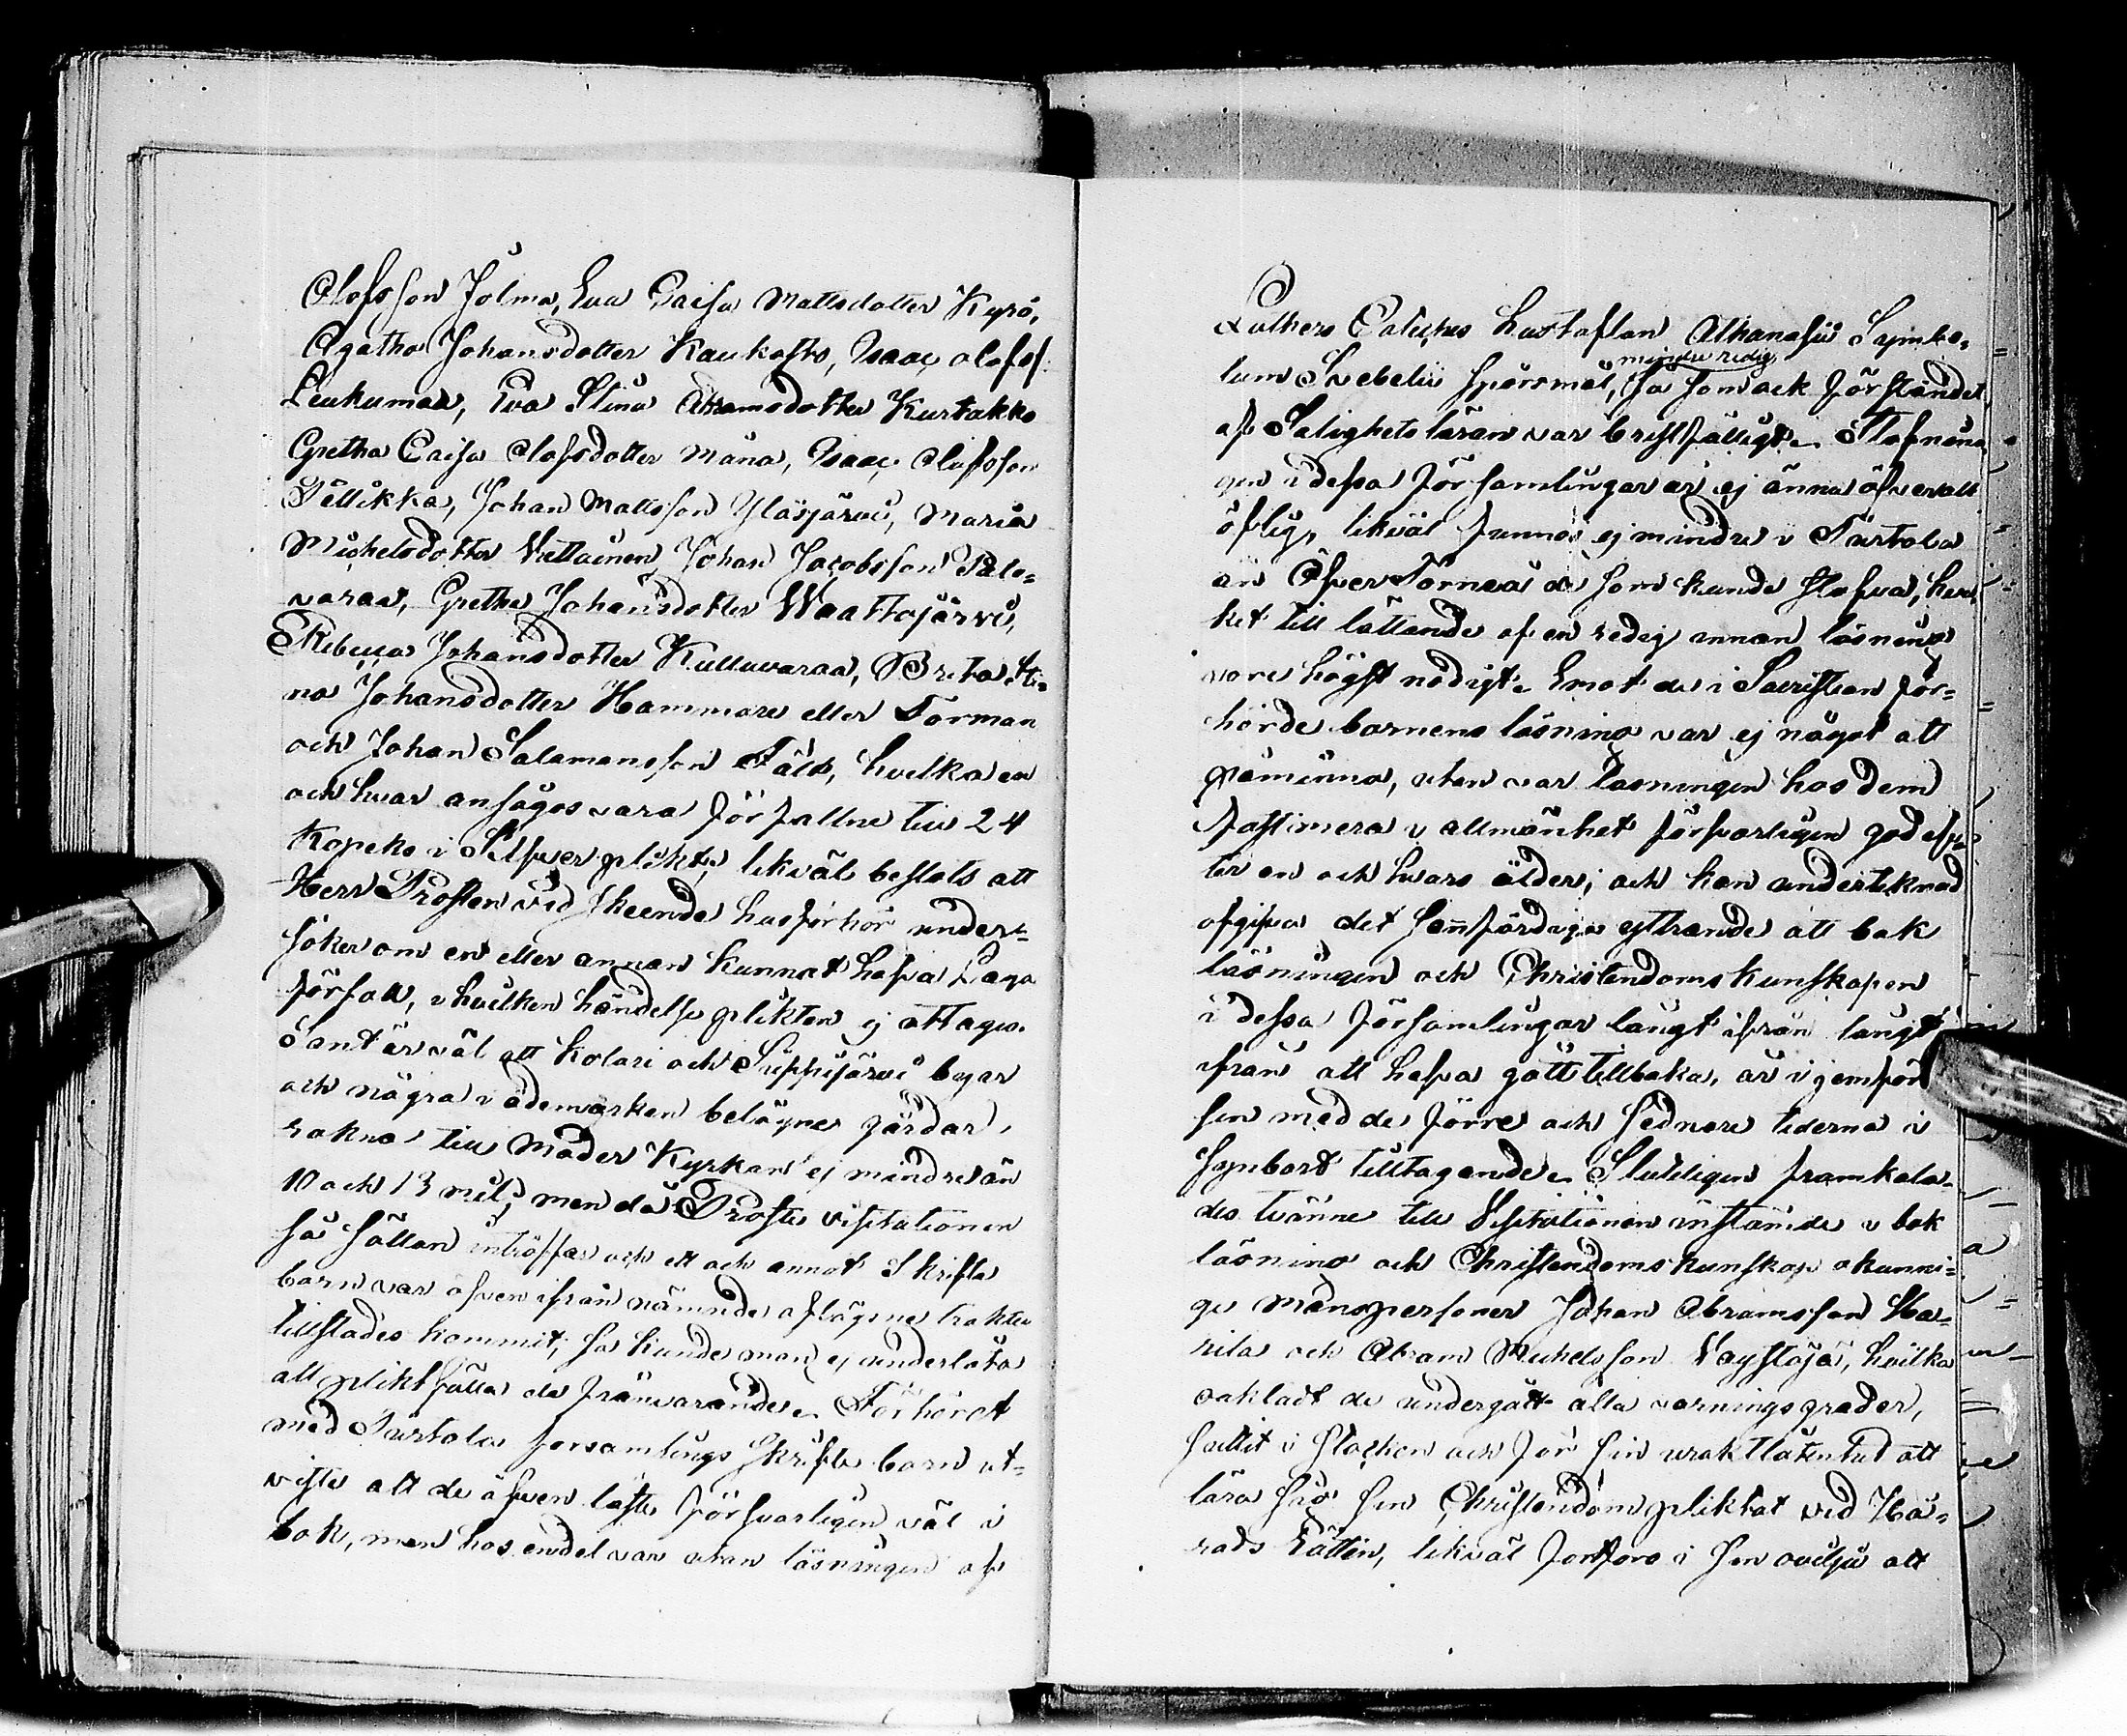 Olofsson Jolma, Eva Caisa Mattsdotter Kyrö,
Agatha Johansdotter Kaukosto, Isaac Olofss.
Leukuma, Eva Stina Abramsdotter Kurtakko
Gretha Caisa Olofsdotter Måna, Isaac Olofsson
Pellikka, Johan Mattsson Yläsjärvi, Maria
Michelsdotter Vittainen, Johan Jacobsson Palo-
varaa, Gretha Johansdotter Waattojärvi,
Rebecca Johansdotter Kulluvaraa, Brita Sti-
na Johansdotter Hammare eller Törman
och Johan Salamonsson Fält, hvilka en
och hvar ansågos vara förfallne till 24
Kopeks i Silfver plikt, likväl beslöts att
Herr Prosten vid skeende husförhör under-
söker om en eller annan kunnat hafva Laga
förfall, i hvilken händelse plikten ej uttages.
Sant är väl att Kolari och Sieppijärvi byar
och några i ödemarken belägne gårdar,
räknat till Moder Kyrkan ej mindre än
10 och 13 mil; men då Prosts visitationen
så sällan inträffar och ett och annat Skrifte
barn var äfven ifrån nämnde aflägsne trakter
tillstädes kommit, så kunde man ej underlåta
att pliktfälla de frånvarande. Förhöret
med Turtola församlings Skrifte barn ut-
viste att de äfven läste försvarligen väl i
bok, men hos en del var utan läsningen af
Luthers Catches hustaflan Athanasii Symbo-
lum Svebelii Spörsmål, mindre redig, så som ock förståndet
af Salighets läran var bristfälligt. Stafnin-
gen i dessa församlingar är ej ännu öfverallt
öflig, likväl funnos ej mindre i Turtola
än Öfver Torneå de som kunde stafva, hvil-
ket till lättande af en redig innan läsning
vore högst nödigt. Emot de i Sacristian för-
hörde barnens läsning var ej något att
påminna, utan var läsningen hos dem
fastmera i allmänhet försvarligen god ef-
ter en och hvars ålder; och kan undertecknad
afgifva det sannfärdiga yttrande att bok
läsningen och Christendoms kunskapen
i dessa församlingar långt ifrån långt
ifrån att hafva gått tillbaka, är i jemförel-
sen med de förre och sednare tiderna i
synbart tilltagende. Slutligen framkala-
des tvänne till Visitationen instämde i bok
läsning och Christendoms kunskap okunni-
ge mans personer Johan Abramsson Ha-
rila och Abram Michelsson Vaystäjä, hvilka
oaktadt de undergått alla varnings grader,
suttit i stocken och för sin uraktlåtenhet att
lära sig sin Christendom pliktat vid Hä-
rads Rätten, likväl fortforo i sin ovilja att